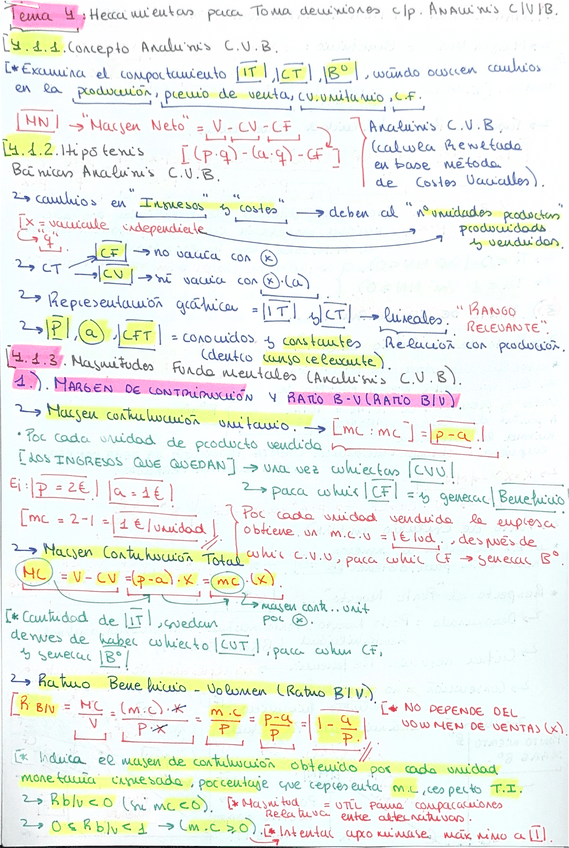 Tema 4: Herramientas para Toma decisiones c/p. ANÁLISIS C/V/B.
[4.1.1. Concepto Análisis C.V.B.
[* Examina el comportamiento |IT|, |CT|, |Bº|, cuándo ocurren cambios
en la producción, precio de venta, cv.unitario, C.F.
|MN| → "Margen Neto" = V - CV - CF
Análisis C.V.B.
(calcula Resultado
en base método
de Costes Variables).
[4.1.2. Hipótesis [(p·q) - (a·q) - CF]
Básicas Análisis C.V.B.
↳ cambios en "Ingresos" y "costes" → deben al "nº unidades productos"
producidas
y vendidas.
[x = variable independiente
↳ "q"
↳ CT |CF| → no varía con x
|CV| → sí varía con x·(a)
↳ Representación gráfica = |IT| y |CT| → lineales. "RANGO
RELEVANTE".
↳ |P|, a, |CFT| = conocidos y constantes Relación con producción.
(dentro rango relevante).
[4.1.3. Magnitudes Fundamentales (Análisis C.V.B).
1.). MARGEN DE CONTRIBUCIÓN Y RATIO B-V (RATIO B/V).
↳ Margen contribución unitario. → [mc : mc] = |p-a|
· Por cada unidad de producto vendida
[LOS INGRESOS QUE QUEDAN] → una vez cubiertos |CVU|
↳ para cubrir |CF| = y generar |Beneficio|
Ej: |p = 2€| |a = 1€|
[mc = 2-1 = |1€/unidad|
Por cada unidad vendida la empresa
obtiene un m.c.u = 1€/ud., después de
cubrir C.V.U, para cubrir CF → generar Bº.
↳ Margen Contribución Total
MC = V - CV = (p-a)·x = mc·(x).
↳ margen cont. unit
por x.
[* Cantidad de |IT|, quedan
después de haber cubierto |CVT|, para cubrir CF,
y generar |Bº|
↳ Ratio Beneficio - Volumen (Ratio B/V).
[R B/V = MC/V = (m.c)·x/p·x = m.c/p = p-a/p = |1 - a/p.|
[* NO DEPENDE DEL
VOLUMEN DE VENTAS (x).
[* Indica el margen de contribución obtenido por cada unidad
monetaria ingresada, porcentaje que representa m.c, respecto T.I.
↳ Rb/v < 0 (si mc < 0). [* Magnitud Relativa = ÚTIL para comparaciones
entre alternativas.
↳ 0 ≤ Rb/v < 1 → (m.c ≥ 0). [* Intentar aproximarse máximo a |1|.